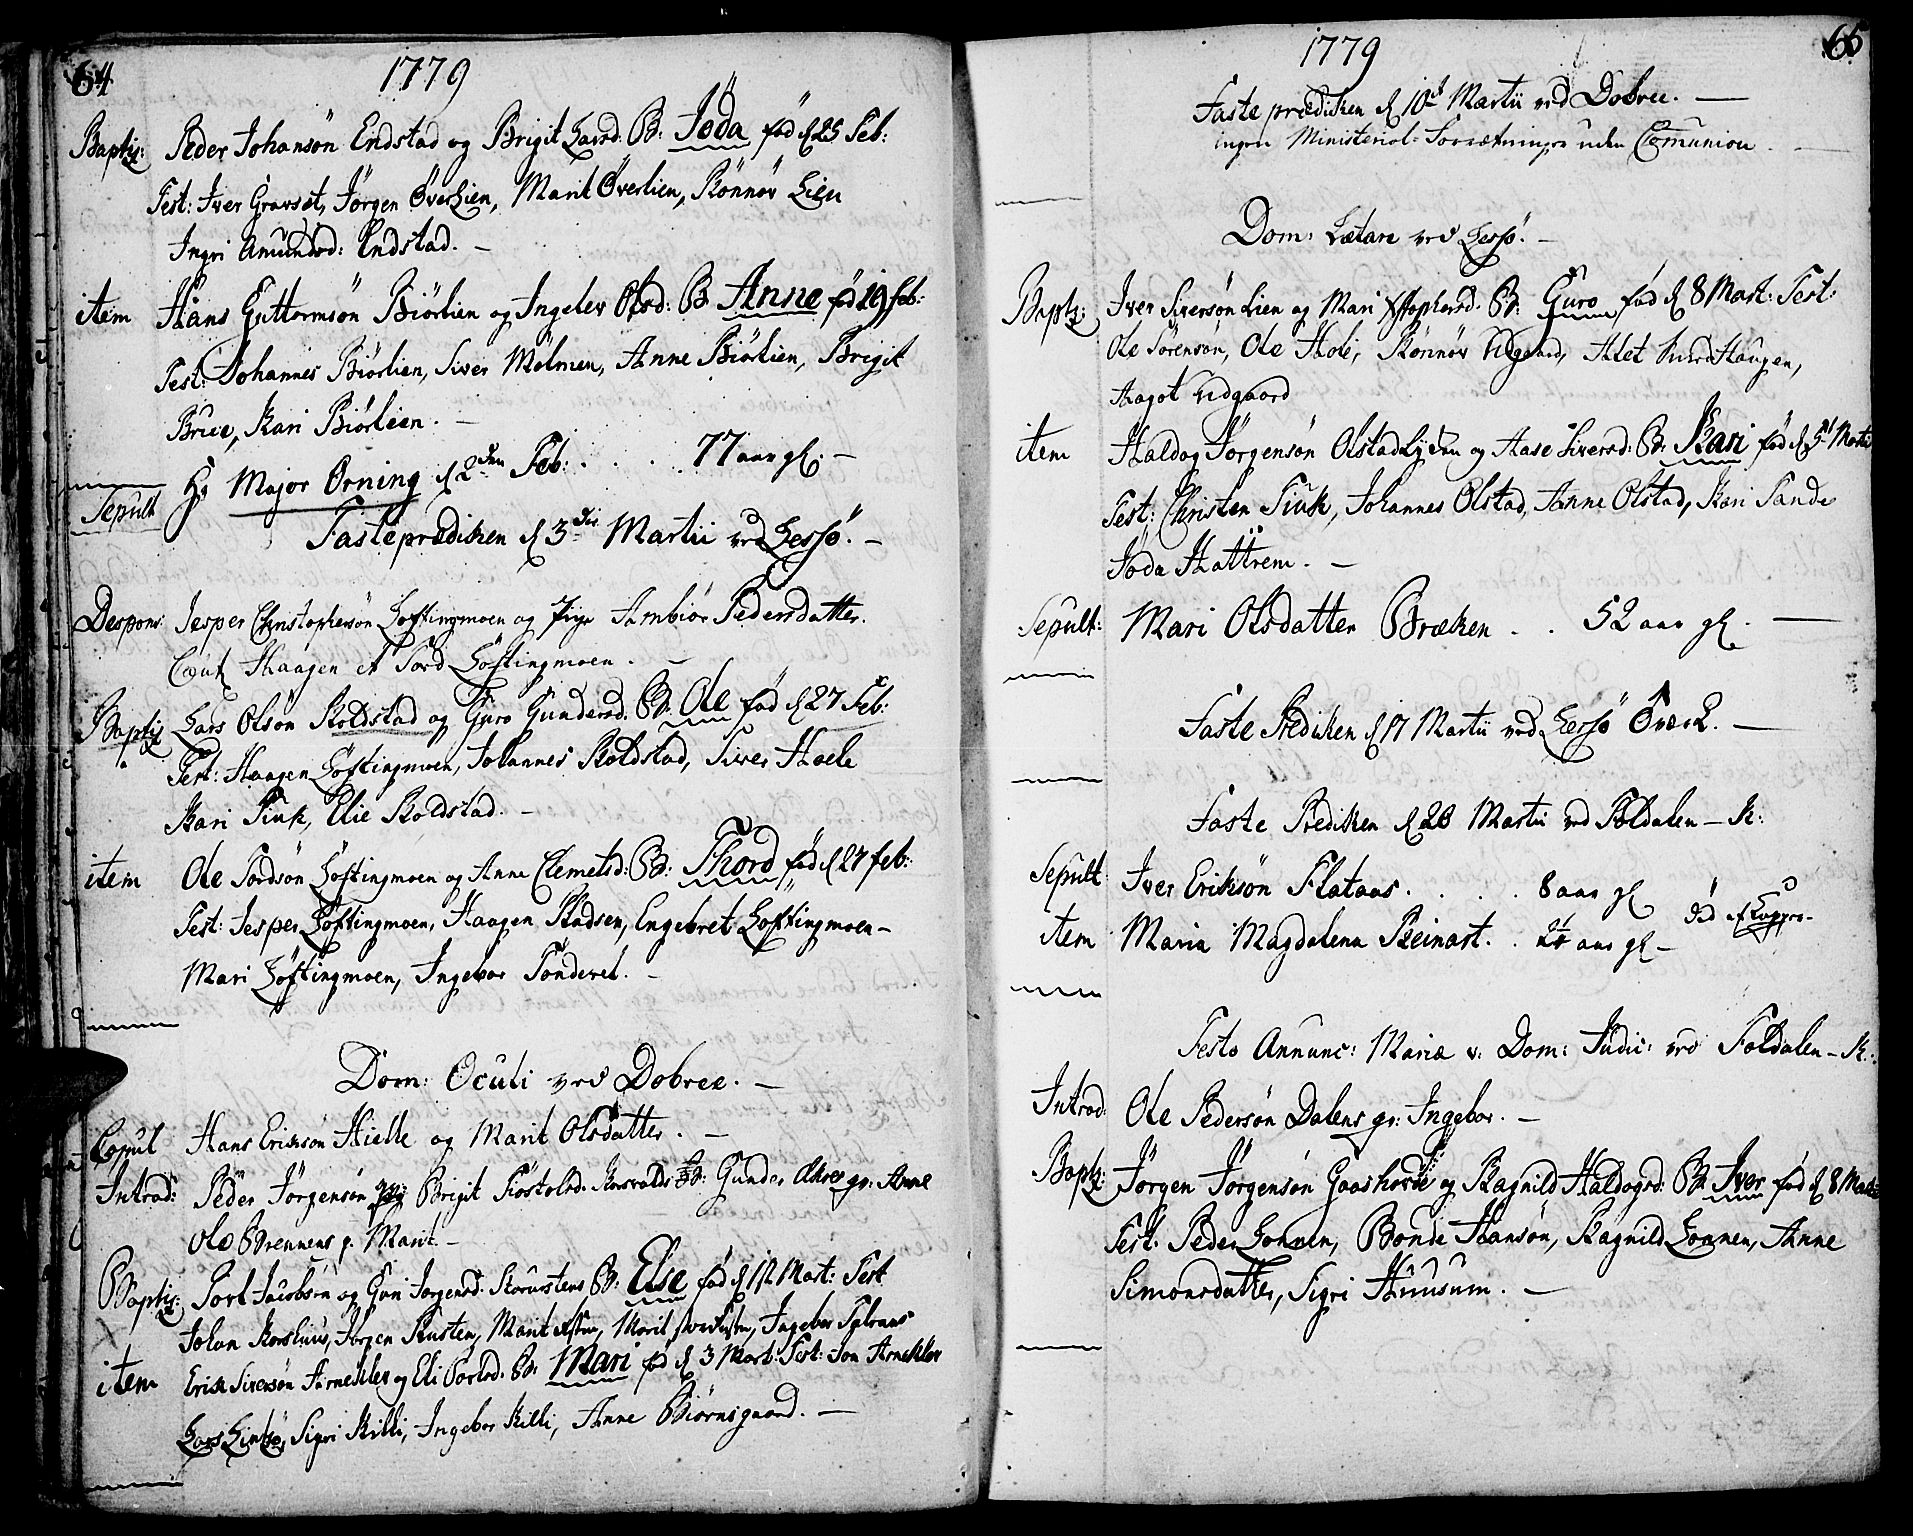 64
1779
Baptz: Peder Johansön Endstad og Brigit Larsd: B: Joda föd d 25 Feb:
Test: Iver Gravset, Jörgen Överlien, Marit Överlien, Rönnöv Lien
Ingri Amundsd: Endstad. –
item Hans Guttormsön Biörlien og Ingelev Olsd: B: Anne föd 19 feb:
Test: Johannes Biörlien, Siver Mölmen, Anne Biörlien, Brigit
Brue, Kari Biörlien. –
Sepult Hr Major Orning d 2den Feb: . . . 77 aar gl. –
Fasteprædiken d 3die Martii ved Lessö. –
Despons: Jesper Christophersön Löftingmoen og Pige Ambiör Pedersdatter.
Caut Haagen et Tord Löftingmoen. –
Baptiz Lars Olsön Roldstad og Guro Gundersd: B: Ole föd d 27 Feb:
Test: Haagen Löftingmoen, Johannes Roldstad, Siver Hoele
Kari Siuk, Elie Roldstad. –
item Ole Tordsön Löftingmoen og Anne Clemetsd: B: Thord föd d 27 feb:
Test: Jesper Löftingmoen, Haagen Stadsen, Engebret Löftingmoen –
Mari Löftingmoen, Ingebor Tönderel. –
Dom: Oculi ved Dobree. –
Copul Hans Eriksön Hielle og Marit Olsdatter. –
Introd: Peder Jörgensön Brigit B: Gunder gv: Anne
Ole Brennens g. Marit –
Baptiz: Jacobsön og Guri Jörgensd: B: Else föd d 12 Mart: Test
Johan Jörgen Rusten, Marit Marit Ingebor
item Erik Siversön og Eli B: Mari föd d 3 Mart: Test: Jon
Lars Sigri Killi, Ingebor Killi, Anne Biörnsgaard. –
65
1779
Faste prædiken d 10de Martii ved Dobree. –
ingen Ministerial-Forretninger uden Comunion. –
Dom: Lætare ved Lessö. –
Baptz: Iver Siversön Lien og Mari B: Guro föd d 8 Mart: Test:
Ole Sörensön, Ole Holi, Rönnöv Udgaard,
Aagot Udgaard
item Haldog Jörgensön og Aase Siversd: B: Kari föd d 5t Martii
Test: Christen Siuk, Johannes Olstad, Anne Olstad, Kari Sande
Joda Hattrem. –
Sepult: Mari Olsdatter Bræken . . 52 aar gl. –
Faste Prediken d 17 Martii ved Lessö Værk. –
Faste Prediken d 20 Martii ved Foldalen – K:
Sepult Iver Eriksön Flataas . . . . 8 aar gl
item Maria Magdalena Reinart. . 21 aar gl –
Festo Annunc: Mariæ v: Dom: Judic: ved Foldalen – K.
Introd: Ole Pedersön Dalens gv: Ingebor. –
Baptz: Jörgen Jörgensön Gaashovde og Ragnild Haldogsd: B: Iver föd d 8 Mart
Test: Peder Lonnen, Bonde Hansön, Ragnild Lonnen, Anne
Simonsdatter, Sigri Huusum. –